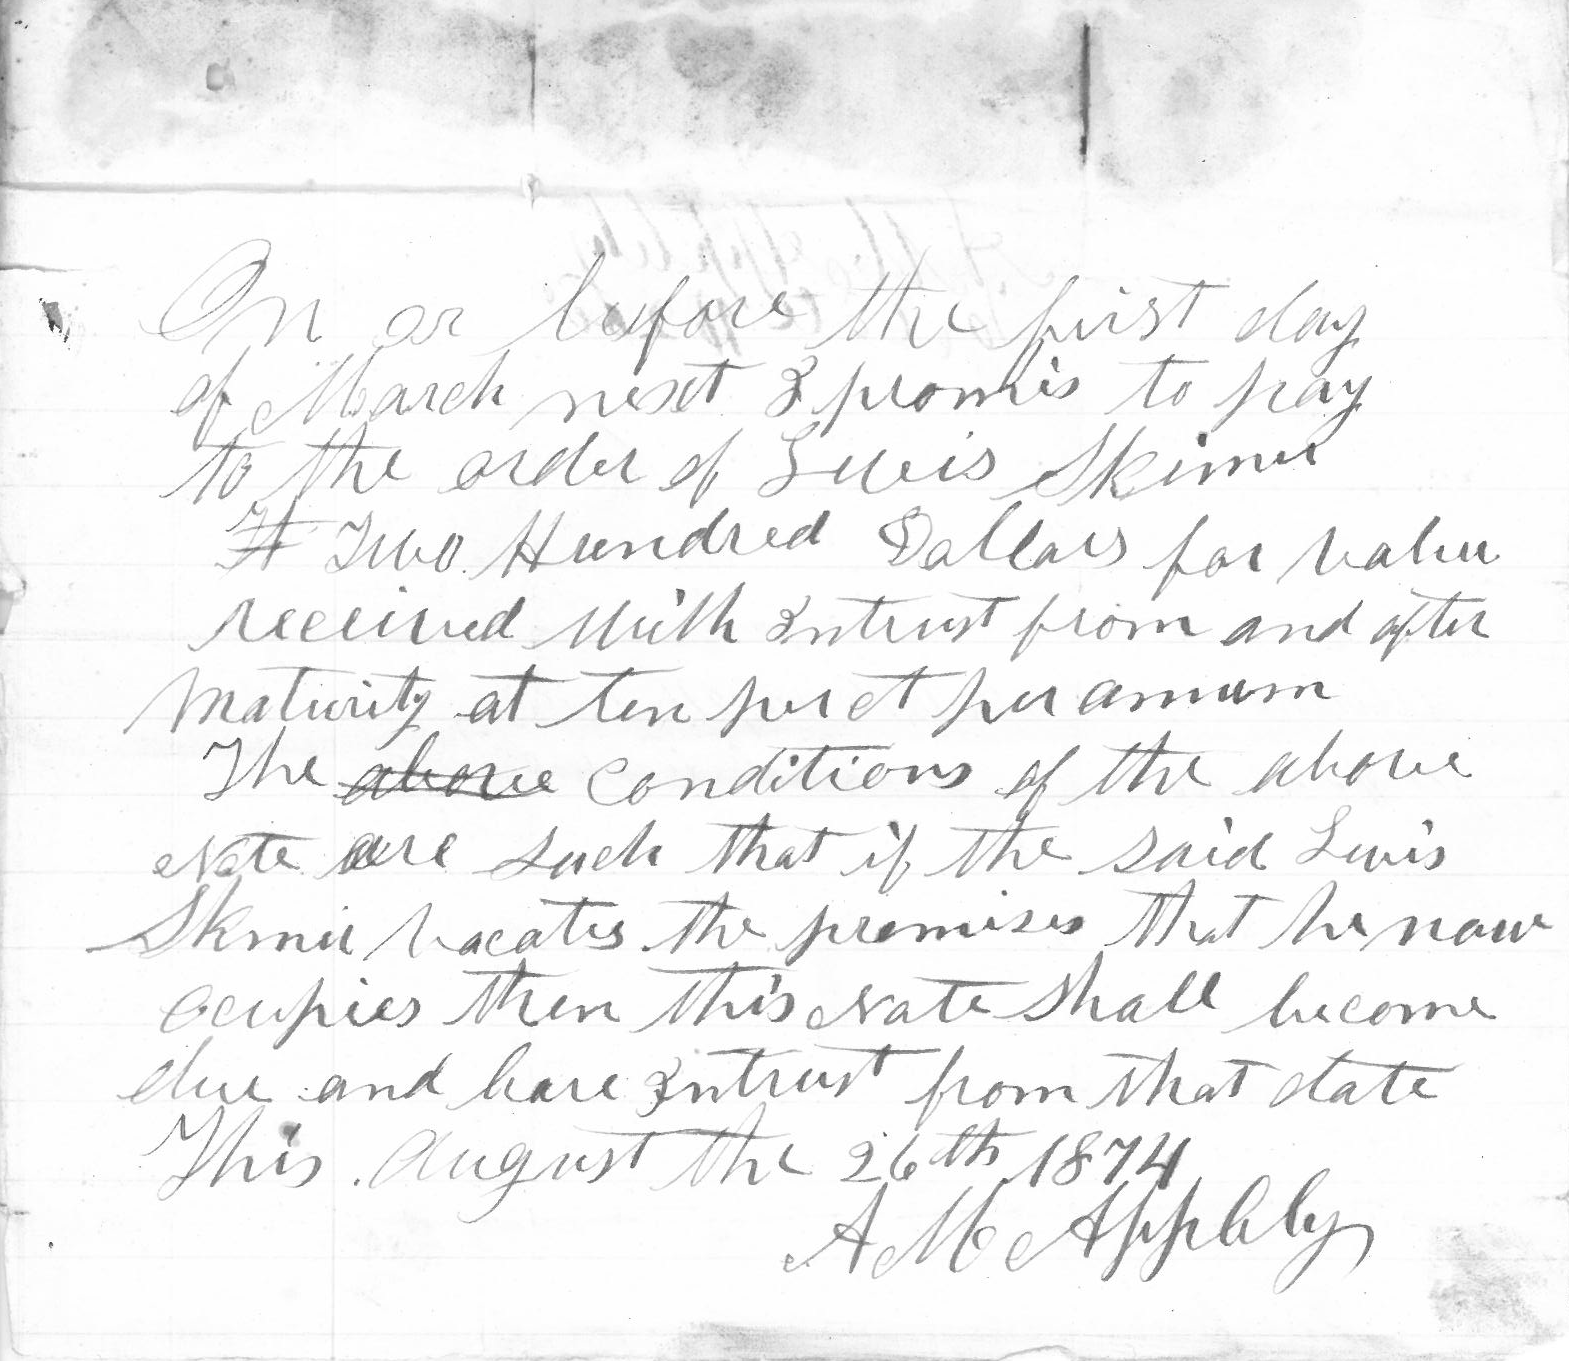 On or before the first day
of March next I promis to pay
to the order of Lewis Skiner
Two Hundred Dollars for value
received With Intrust from and after
Maturity at ten per ct per annum
The above Conditions of the above
Note are such that if the said Lewis
Skiner vacates the premises that he now
ocupies then this Note shall become
due and bare Intrust from that date
This August the 26th 1874
A M Appleby